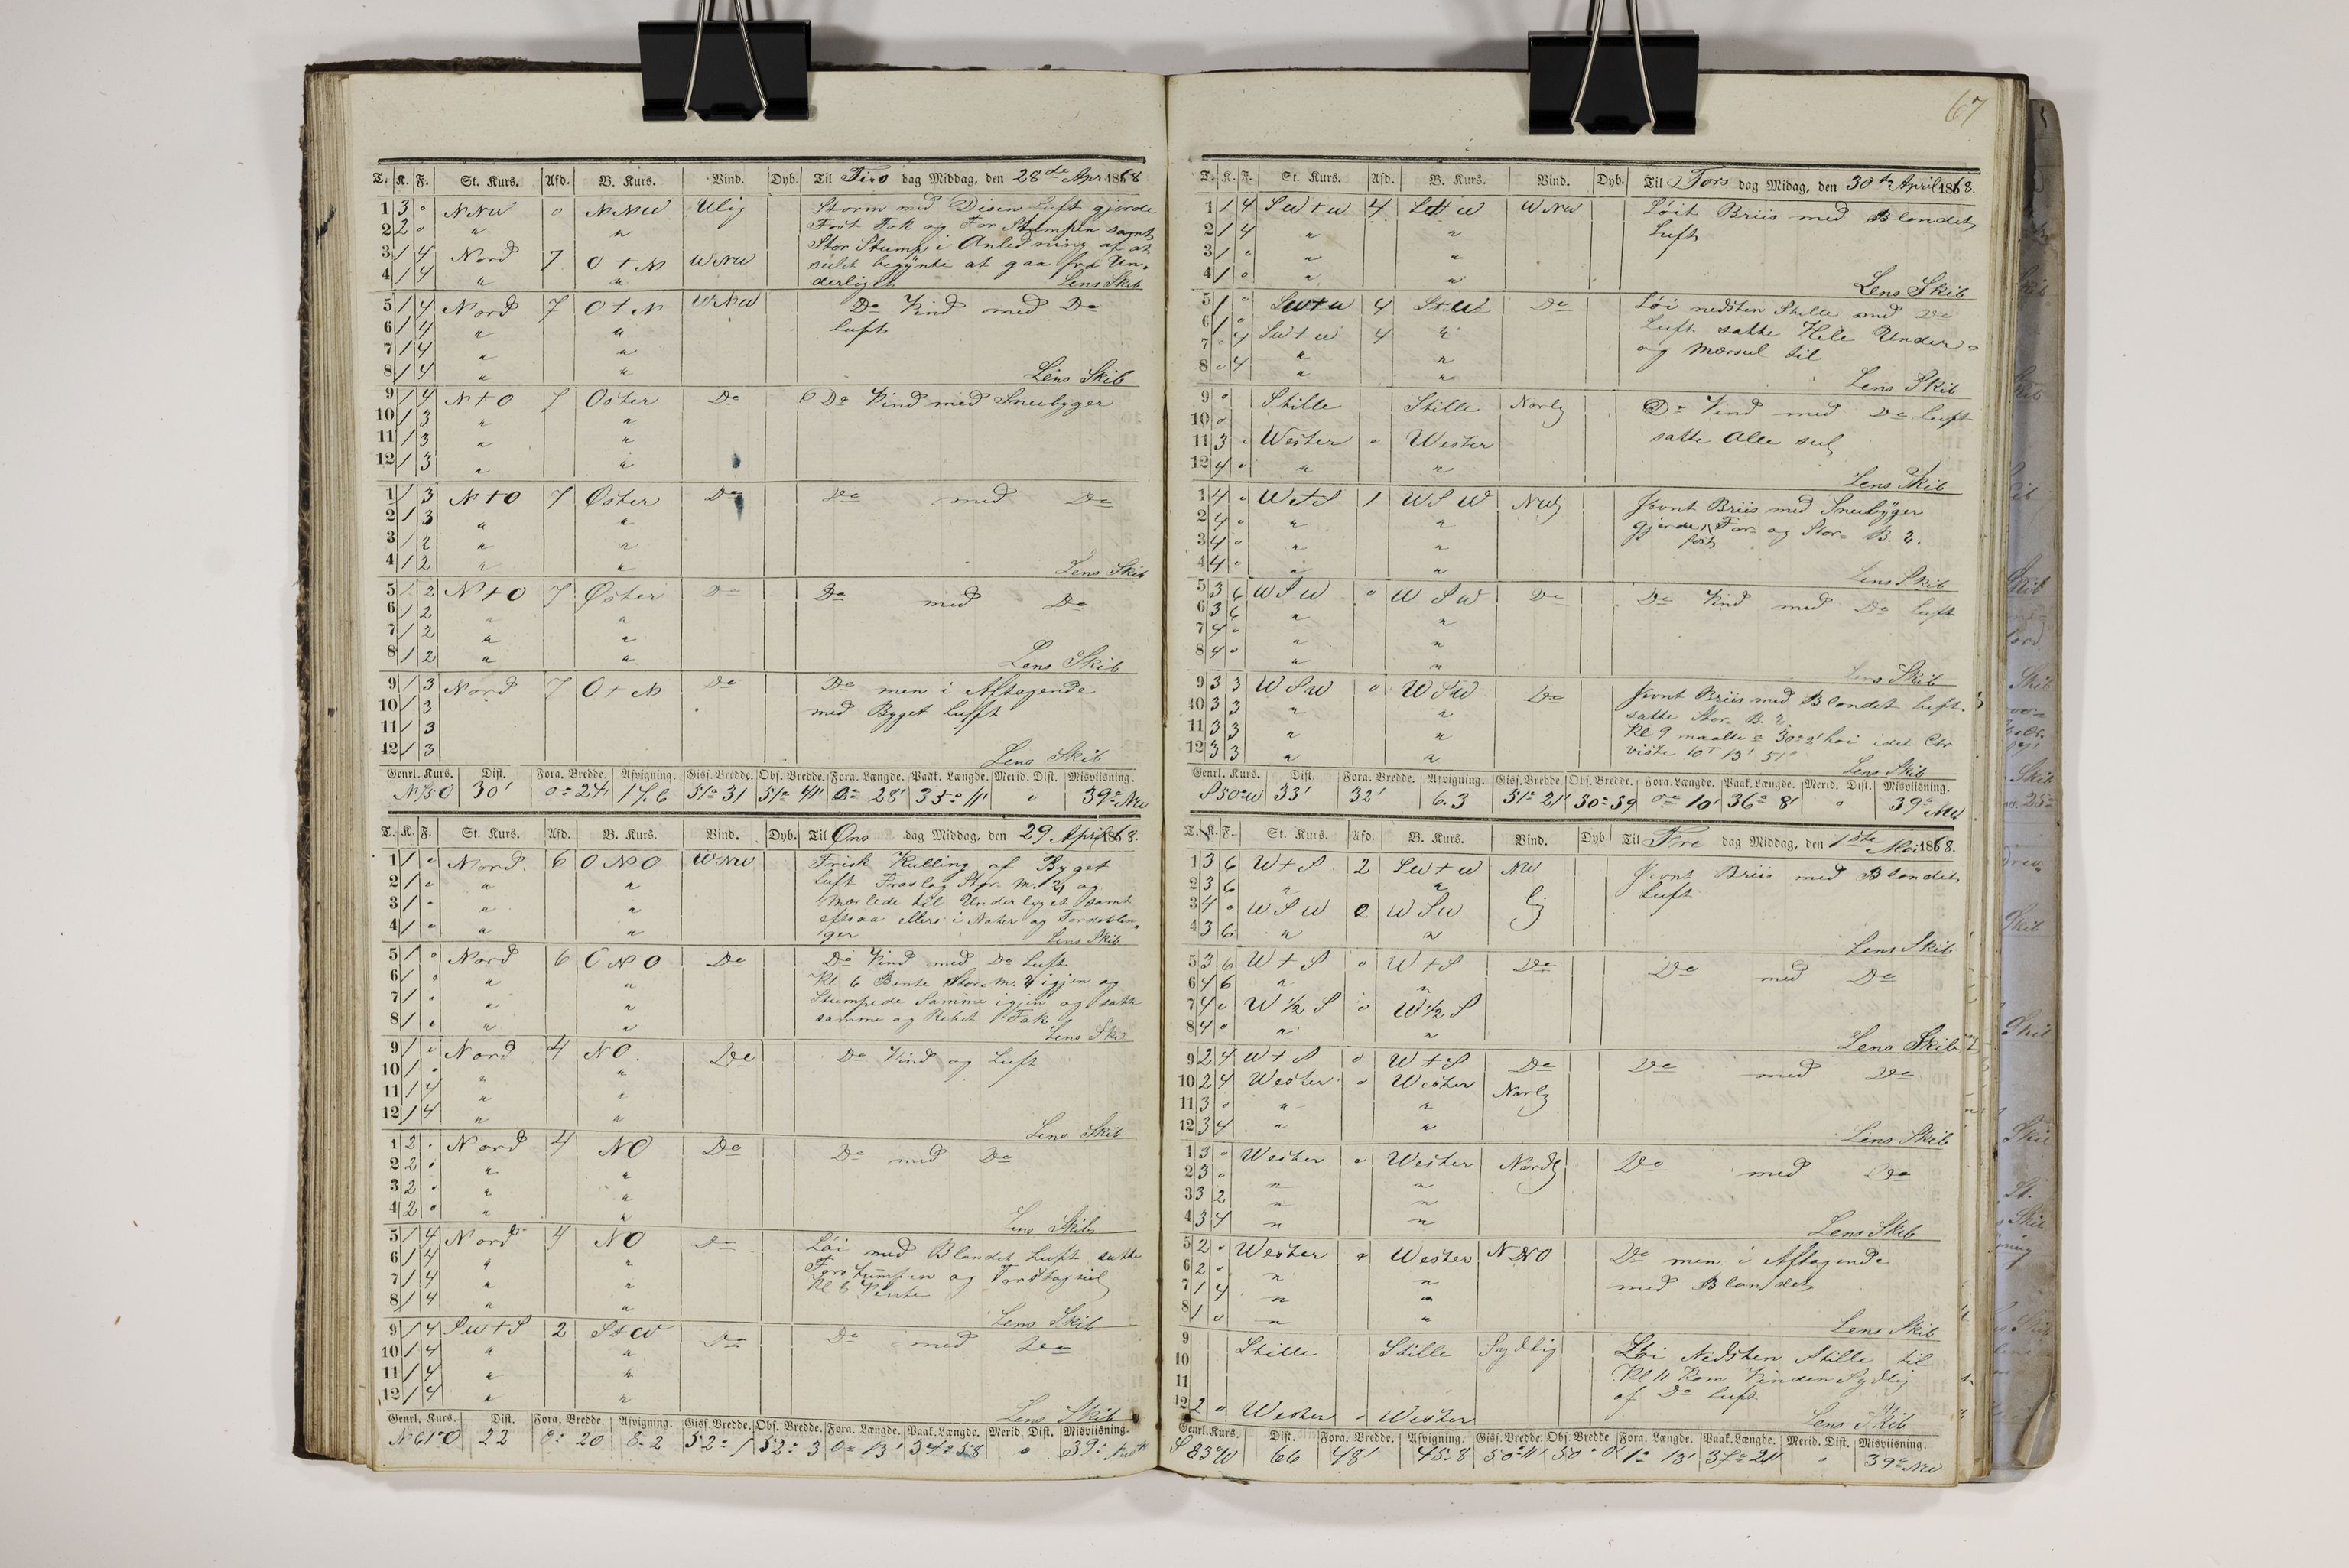 67
T. K. F. St. Kurs. Afd. B. Kurs. Vind. Dyb. Til Tirs dag Middag, den 28de Apr 1868
1 3 o NNW o NNW Ulig Storm med Disen Luft gjorde
2 2 o " " Fast Fok og For Stumpen samt
Stor Stump i Anledning af at
3 1 4 Nord 7 O+N WNW seilet begynte at gaa fra Un-
4 1 4 " " derliget Lens Skib
5 1 4 Nord 7 O+N WNW Do Vind med Do
6 1 4 " " Luft
7 1 4 " "
8 1 4 " " Lens Skib
9 1 4 N+O 7 Oster Do Do Vind med Sneebyger
10 1 3 " "
11 1 3 " "
12 1 3 " "
1 1 3 N+O 7 Øster Do Do med Do
2 1 3 " "
3 1 2 " "
4 1 2 " " Lens Skib
5 1 2 N+O 7 Øster Do Do med Do
6 1 2 " "
7 1 2 " "
8 1 2 " " Lens Skib
9 1 3 Nord 7 O+N Do Do men i Aftagende
10 1 3 med Byget Luft
11 1 3
12 1 3 Lens Skib
Genrl. Kurs. Dist. Fora. Bredde. Afvigning. Gisf. Bredde. Obs. Bredde. Fora. Længde. Paak. Længde. Merid. Dist. Misviisning.
30' 0° 24' 17.6 51° 31 51° 41' 0° 28' 35° 11' " 39° NW
T. K. F. St. Kurs. Afd. B. Kurs. Vind. Dyb. Til Ons dag Middag, den 29. April 1868.
1 1 o Nord 6 ONO WNW Frisk Kulling af Byget
2 1 o " " Luft Fraslog Stor. M. 2, og
3 1 o " " Mærlede til Underliget samt
4 1 o " " efsaa ellers i Nater og
ger Lens Skib
5 1 o Nord 6 ONO Do Do Vind med Do Luft
6 1 o " " Kl 6 Bente Stor M. igjen og
7 1 o " " Stumpede Samme igjen og satte
8 1 o " " samme og Rebet Fok
Lens Skib
9 1 o Nord 4 NO. Do Do Vind og Luft
10 1 o " "
11 1 4 " "
12 1 4 " " Lens Skib
1 2 o Nord 4 NO Do Do med Do
2 2 o " "
3 2 o " "
4 2 o " " Lens Skib
5 1 4 Nord 4 NO Do Løi med Blandet Luft satte
6 1 4 " " Forstumpen og Forstagseil
7 1 4 " " Kl 6 Vente
8 1 4 " " Lens Skib
9 1 4 SW+S 2 S+W Do Do med Do
10 1 4 " "
11 1 4 " "
12 1 4 " " Lens Skib
Genrl. Kurs. Dist. Fora. Bredde. Afvigning. Gisf. Bredde. Obs. Bredde. Fora. Længde. Paak. Længde. Merid. Dist. Misviisning.
N 61° O 22 0° 20 8.2 52° 1 52° 3 0° 13' 34° 58 " 39°
T. K. F. St. Kurs. Afd. B. Kurs. Vind. Dyb. Til Tors dag Midag, den 30te April 1868.
1 1 4 SW+W 4 S+W WNW Løit Briis med Blandet
2 1 4 " " Luft
3 1 o " "
4 1 o " " Lens Skib
5 1 o SW+W 4 S+W Do Løi nedsten Stille med Do
6 1 o Luft satte Hele Under
7 o 4 SW+W 4 " og Mærseil til
8 o 4 " " Lens Skib
9 o Stille Stille Norlg Do Vind med Do Luft
10 o satte Alle seil
11 3 o Wester o Wester
12 4 o " " Lens Skib
1 4 o W+S 1 WSW NWlg Jevnt Briis med Sneebyger
2 4 o " " gjorde For- og Stor- B. 2.
3 4 o " " fast
4 4 o " " Lens Skib
5 3 6 WSW o WSW Do Do Vind med Do Luft
6 3 6 " "
7 4 o " "
8 4 o " " Lens Skib
9 3 3 WSW o WSW Do Jevnt Briis med Blandet Luft
10 3 3 " " satte Stor. B. 2.
11 3 3 " " Kl 9 maalte høi idet Chr
12 3 3 " " viste 10T 13' 51"
Lens Skib
Genrl. Kurs. Dist. Fora. Bredde. Afvigning. Gisf. Bredde. Obs. Bredde. Fora. Længde. Paak. Længde. Merid. Dist. Misviisning.
S 50° W 33' 32' 6.3 51° 21' 30° 59 0° 10' 36° 8' " 39° NW
T. K. F. St. Kurs. Afd. B. Kurs. Vind. Dyb. Til Fre dag Middag, den 1ste Mai 1868.
1 3 6 W+S 2 SW+W NW Jevnt Briis med Blandet
2 3 6 " " Luft
3 4 o WSW o WSW lig
4 3 6 " " Lens Skib
5 3 6 W+S o W+S Do Do med Do
6 4 6 " "
7 4 o W 1/2 S o W 1/2 S
8 4 o " " Lens Skib
9 2 4 W+S o W+S Do Do med Do
10 2 4 Wester o Wester Norlg
11 3 o " "
12 3 4 " " Lens Skib
1 3 o Wester o Wester Nordlg Do med Do
2 3 o " "
3 3 2 " "
4 3 4 " " Lens Skib
5 2 o Wester o Wester NNO Do men i Aftagende
6 2 o " " med Blandet
7 1 4 " "
8 1 o " " Lens Skib
9 Stille Stille Sydlig Løi Nedsten Stille til
10 Kl 11 Kom Vinden Sydlig
11 af Do Luft
12 2 o Wester o Wester Lens Skib
Genrl. Kurs. Dist. Fora. Bredde. Afvigning. Gisf. Bredde. Obs. Bredde Fora. Længde. Paak. Længde. Merid. Dist. Misviisning.
S 83° W 66 48' 45.8 50° 11' 50° 0' 1° 13' 37° 21' " 39° NW